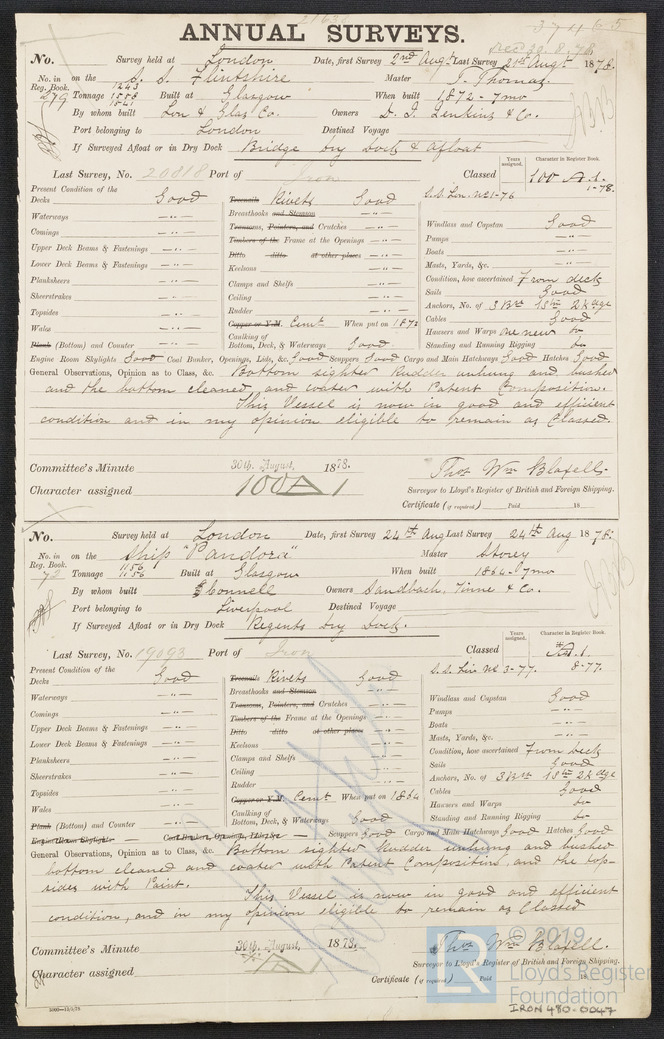 ANNUAL SURVEYS.
No. Survey held at London Date, first Survey 2nd Augt Last Survey 21st Augt 1878.
No. in Reg. Book. on the S. S. Flintshire Master J. Thomas
279 Tonnage 1243 1558 1541 Built at Glasgow When built 1872 - 7mo
By whom built Lon & Glas Co. Owners D. J. Jenkins & Co.
Port belonging to London Destined Voyage
If Surveyed Afloat or in Dry Dock Bridge Dry Dock & Afloat
Years assigned. Character in Register Book.
Last Survey, No. 20018 Port of Iron Classed 100 A.1.
1-78.
Present Condition of the
Decks Good Treenails Rivets Good S.S. Lon. No 1-76
Waterways — " — Breasthooks and Stemson — " — Windlass and Capstan Good
Comings — " — Transoms, Pointers, and Crutches — " — Pumps — " —
Upper Deck Beams & Fastenings — " — Timbers of the Frame at the Openings — " — Boats — " —
Lower Deck Beams & Fastenings — " — Ditto ditto at other places — " — Masts, Yards, &c. — " —
Planksheers — " — Keelsons — " — Condition, how ascertained From deck
Sheerstrakes — " — Clamps and Shelfs — " — Sails Good
Topsides — " — Ceiling — " — Anchors, No. of 3 Br 1 Stm 2 Kedge
Wales — " — Rudder — " — Cables Good
Plank (Bottom) and Counter — " — Copper or Y.M. Cemt. When put on 1872 Hawsers and Warps One new do
Caulking of Bottom, Deck, & Waterways Good Standing and Running Rigging do
Engine Room Skylights Good Coal Bunker, Openings, Lids, &c. Good Scuppers Good Cargo and Main Hatchways Good Hatches Good
General Observations, Opinion as to Class, &c. Bottom sighted Rudder unhung and bushed
and the bottom cleaned and coated with Patent Composition.
This Vessel is now in good and efficient
condition and in my opinion eligible to remain as Classed.
Committee's Minute 30th August, 1878.
Character assigned 100 A 1
Thos Wm Blaxell.
Surveyor to Lloyd's Register of British and Foreign Shipping.
Certificate (if required) Paid 18
No. Survey held at London Date, first Survey 24th Aug Last Survey 24th Aug 1878.
No. in Reg. Book. on the Ship "Pandora" Master Storey
73 Tonnage 1156 1156 Built at Glasgow When built 1864. 7mo
By whom built Connell Owners Sandbach, Tinne & Co.
Port belonging to Liverpool Destined Voyage
If Surveyed Afloat or in Dry Dock Regents Dry Dock.
Years assigned. Character in Register Book.
Last Survey, No. 19093 Port of Iron Classed A.1.
8-77.
Present Condition of the
Decks Good Treenails Rivets Good S.S. Liv No 3-77.
Waterways — " — Breasthooks and Stemson — " — Windlass and Capstan Good
Comings — " — Transoms, Pointers, and Crutches — " — Pumps — " —
Upper Deck Beams & Fastenings — " — Timbers of the Frame at the Openings — " — Boats — " —
Lower Deck Beams & Fastenings — " — Ditto ditto at other places — " — Masts, Yards, &c. — " —
Planksheers — " — Keelsons — " — Condition, how ascertained From deck
Sheerstrakes — " — Clamps and Shelfs — " — Sails Good
Topsides — " — Ceiling — " — Anchors, No. of 3 Br 1 Stm 2 Kedge
Wales — " — Rudder — " — Cables Good
Plank (Bottom) and Counter — " — Copper or Y.M. Cemt. When put on 1864 Hawsers and Warps do
Caulking of Bottom, Deck, & Waterways Good Standing and Running Rigging do
Engine Room Skylights — Coal Bunker, Openings, Lids, &c. — Scuppers Good Cargo and Main Hatchways Good Hatches Good
General Observations, Opinion as to Class, &c. Bottom sighted Rudder unhung and bushed
bottom cleaned and coated with Patent Composition and the top-
sides with Paint.
This Vessel is now in good and efficient
condition, and in my opinion eligible to remain as Classed
Committee's Minute 30th August, 1878.
Character assigned
Thos Wm Blaxell.
Surveyor to Lloyd's Register of British and Foreign Shipping.
Certificate (if required) Paid 18
© 2019
Lloyd's Register
Foundation
IRON 480-0047